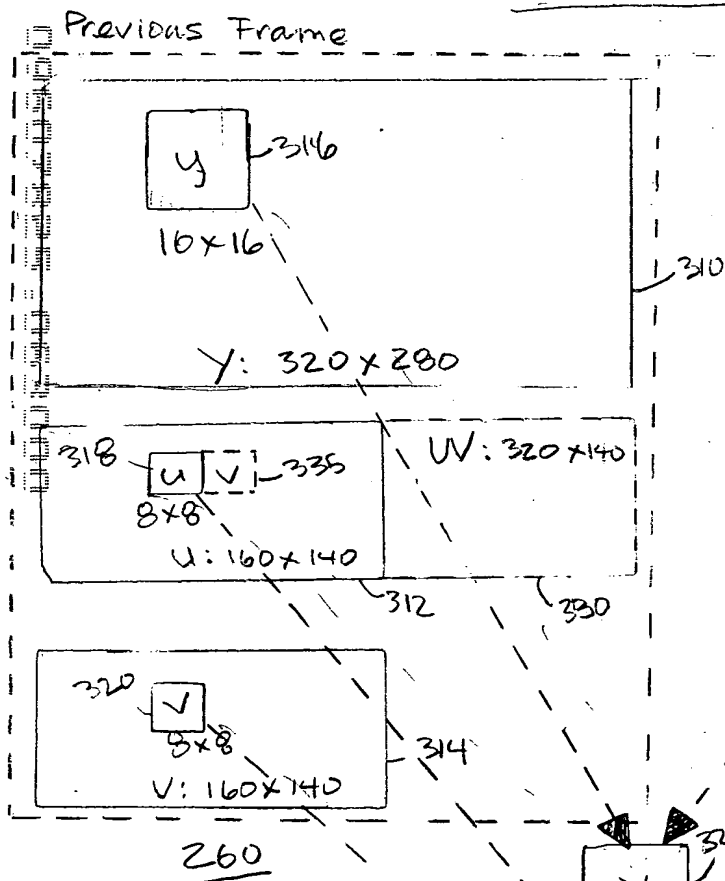 Previous Frame
y
316
16x16
310
Y: 320 x 280
318
u
v
335
UV: 320 x 140
8x8
U: 160 x 140
312
330
320
v
8x8
314
V: 160 x 140
260